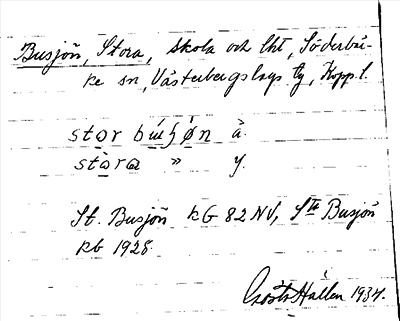 Busjön, Stora, skola och lht, Söderbär-
ke sn, Västerbergslags tg, Kopp. l.
stọr bɯ́ʃọ̀n ä.
stạ̀ra " y.
St. Busjön kG 82 NV, Sta Busjön
kb 1928.
Gösta Hallen 1934.